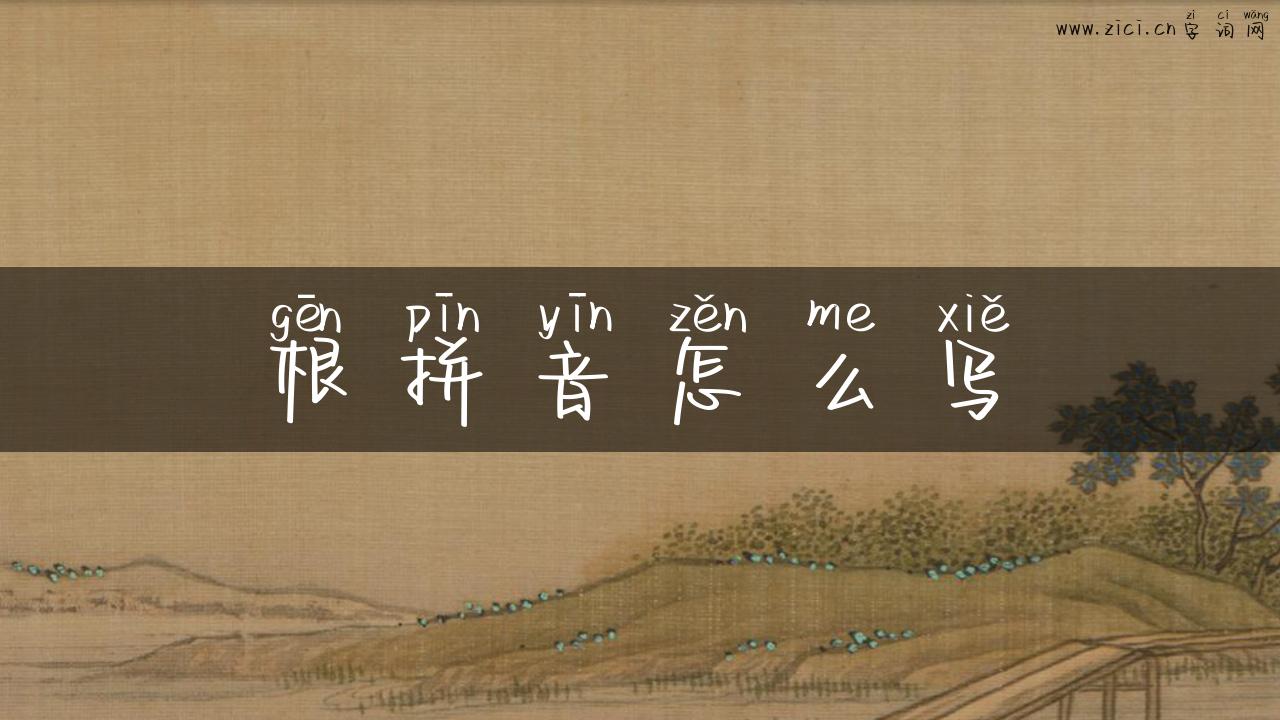 zì cí wǎng
www.zici.cn 字 词 网
gēn pīn yīn zěn me xiě
根 拼 音 怎 么 写